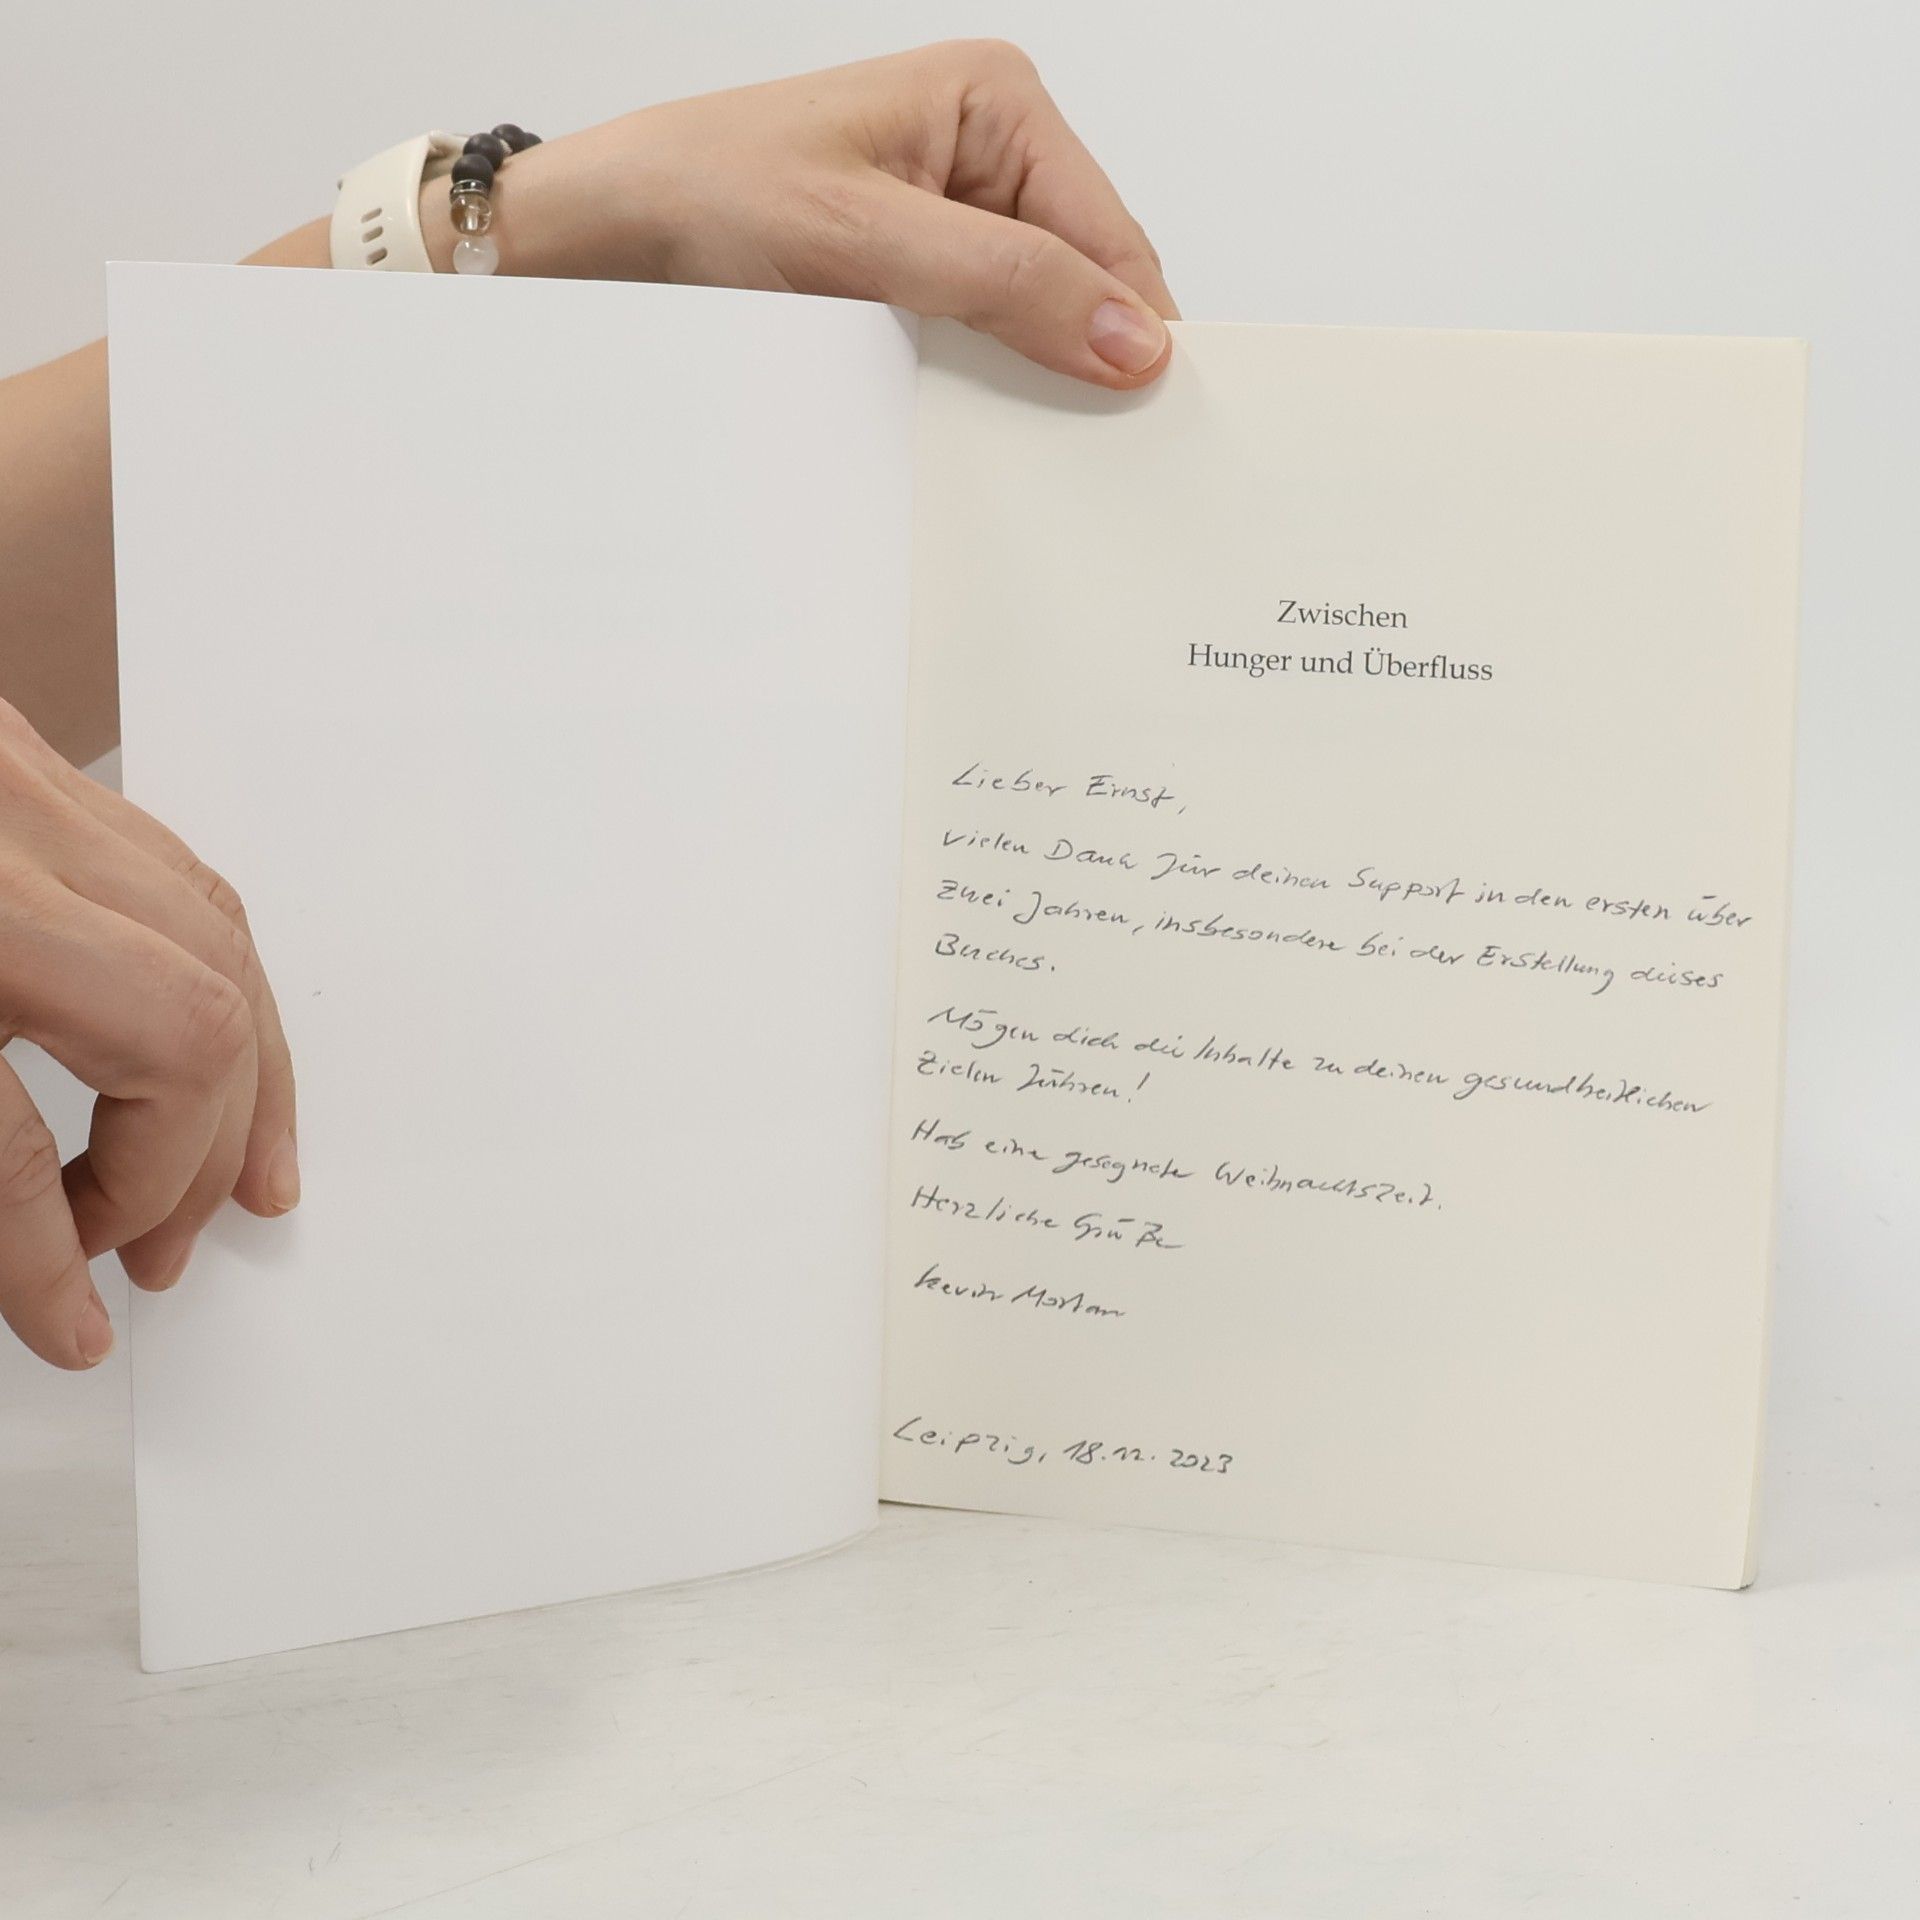 Zwischen
Hunger und Überfluss
Lieber Ernst,
vielen Dank für deinen Support in den ersten über
zwei Jahren, insbesondere bei der Erstellung dieses
Buches.
Mögen dich die Inhalte zu deinen gesundheitlichen
Zielen führen!
Hab eine gesegnete Weihnachtszeit.
Herzliche Grüße
Kevin
Leipzig, 18.12.2023